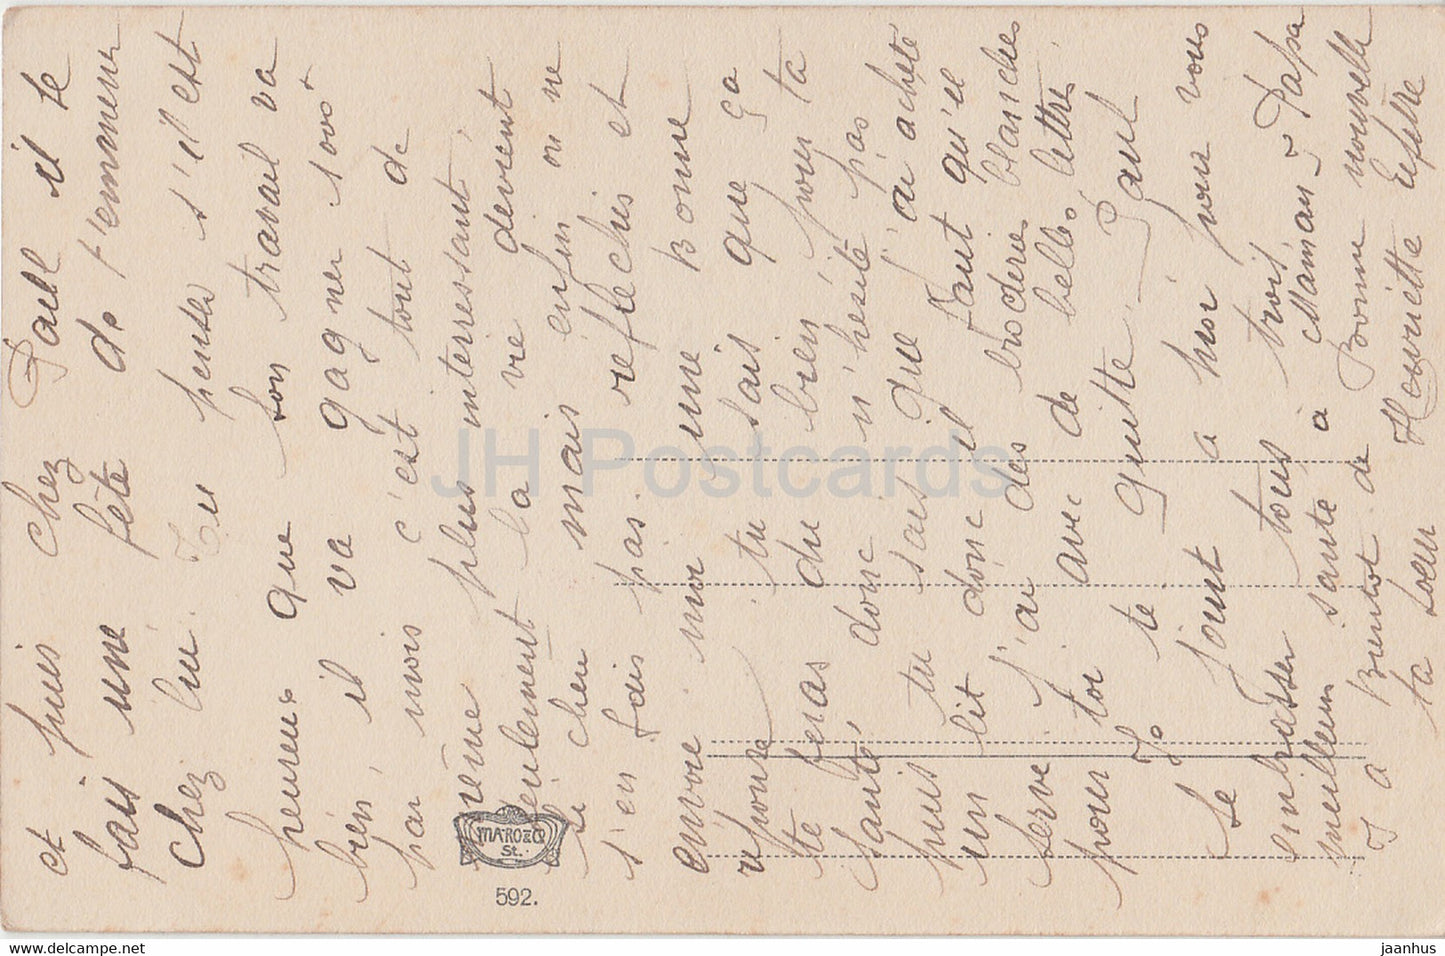 et puis chez Paul il se
fais une fête de t'emmener
chez lui. Tu penses s'il est
heureux que son travail va
bien, il va gagner 500f
par mois c'est tout de
même plus interressant,
seulement la vie devient
si cher mais enfin on ne
s'en fais pas reflechis et
envoie moi une bonne
reponse tu sais que ça
te feras du bien pour ta
santé, donc n'hesite pas
puis tu sais que j'ai acheté
un lit donc il faut qu'il
serve j'ai des broderies blanches
pour toi avec de belles lettres
Je te quitte. Paul
se joint a moi pour vous
embrasser tous trois
meilleur santé a Maman, Papa
a Bientot de Bonne nouvelle
ta soeur Henriette Lefebre
MARCO & Co
St.
592.
JH Postcards
www.delcampe.net
jaanhus